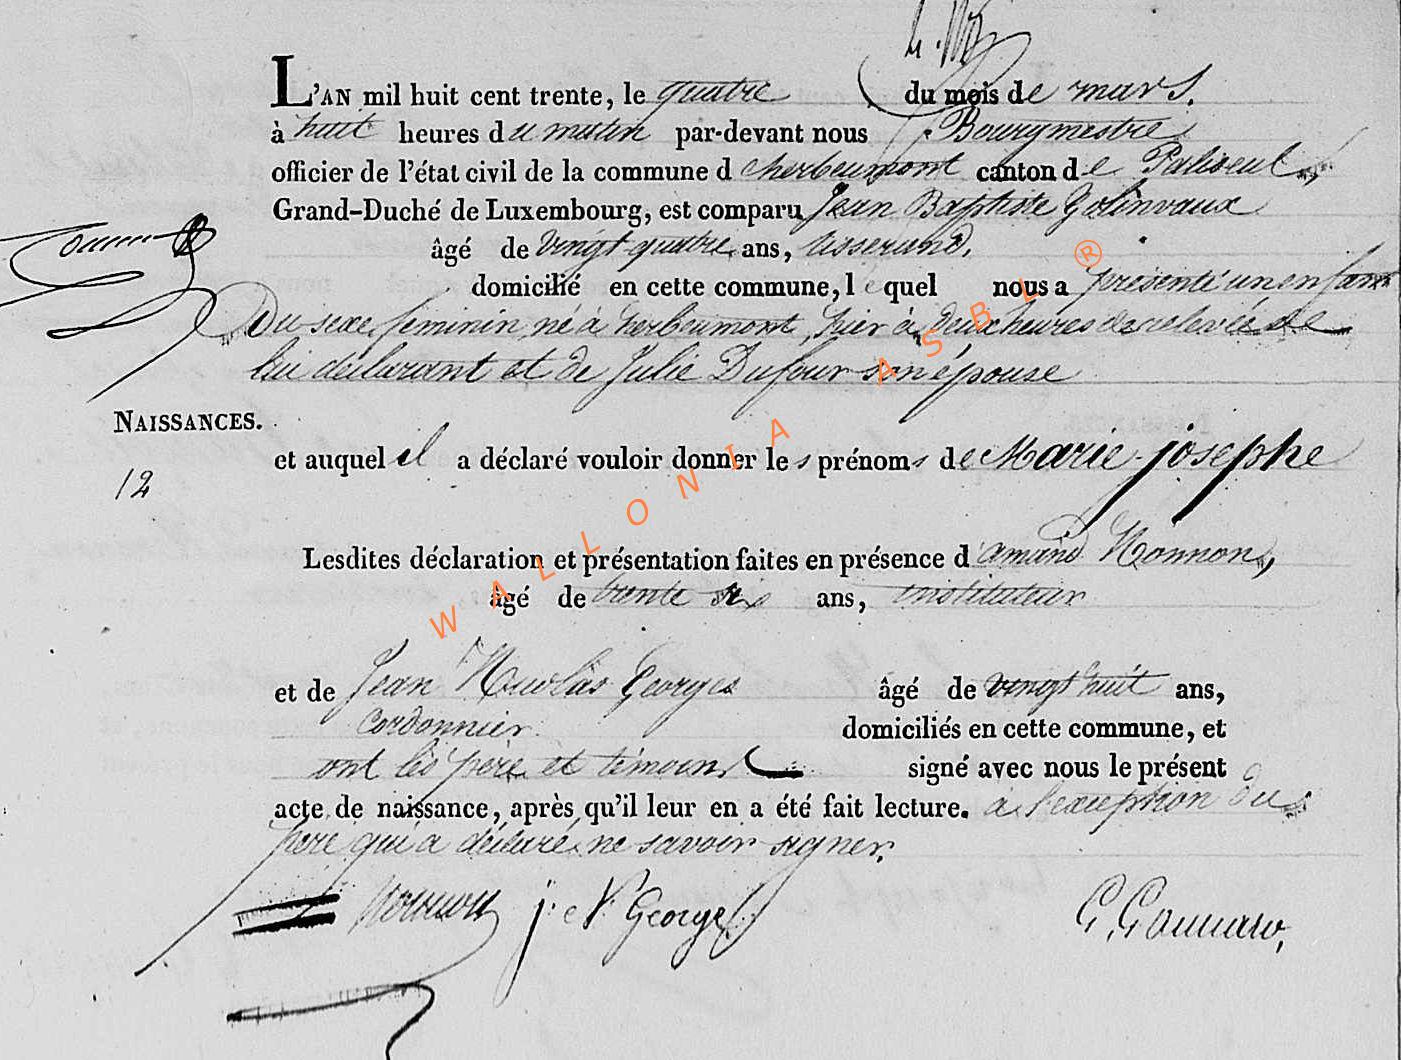 L'AN mil huit cent trente, le quatre du mois de mars.
à huit heures du matin par-devant nous Bourgmestre
officier de l'état civil de la commune d'herbeumont canton de Paliseul,
Grand-Duché de Luxembourg, est comparu Jean Baptiste Golinvaux
âgé de vingt-quatre ans, tisserand,
domicilié en cette commune, lequel nous a présenté un enfant
Du sexe féminin né à herbeumont, hier à deux heures de relevée de
lui déclarant et de Julie Dufour son épouse
NAISSANCES.
12
et auquel il a déclaré vouloir donner les prénoms de Marie-josephe
Lesdites déclaration et présentation faites en présence d'amand Nonnon,
âgé de trente six ans, instituteur
et de Jean Nicolas Georges âgé de vingt huit ans,
cordonnier domiciliés en cette commune, et
ont les père et témoins signé avec nous le présent
acte de naissance, après qu'il leur en a été fait lecture. à l'exception du
père qui a déclaré ne savoir signer.
Nonnon j. N. George
WALLONIA ASBL ®